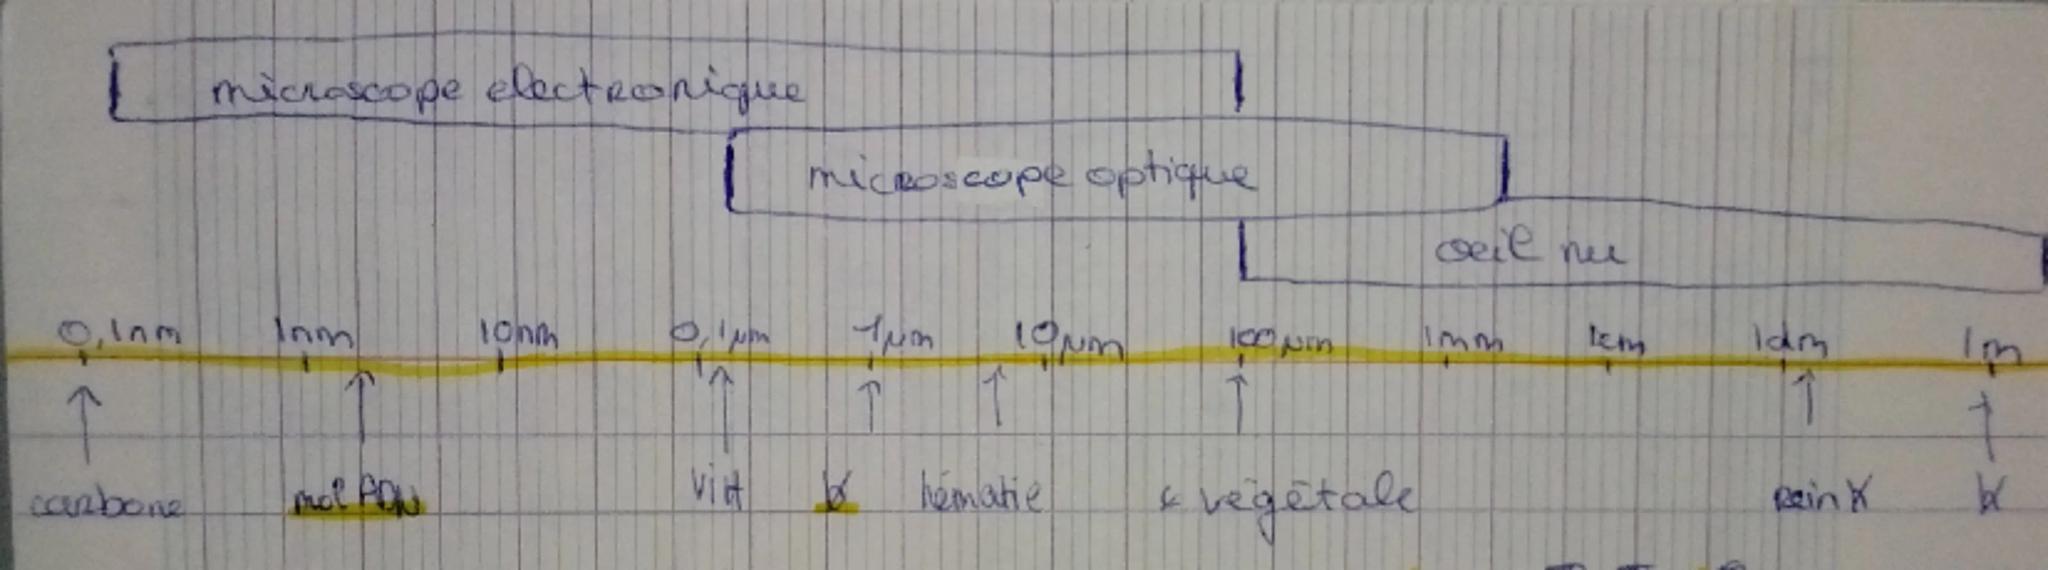 microscope electronique
microscope optique
oeil nu
0,1nm 1nm 10nm 0,1µm 1µm 10µm 100µm 1mm 1cm 1dm 1m
carbone mol ADN VIH hématie végétale rein